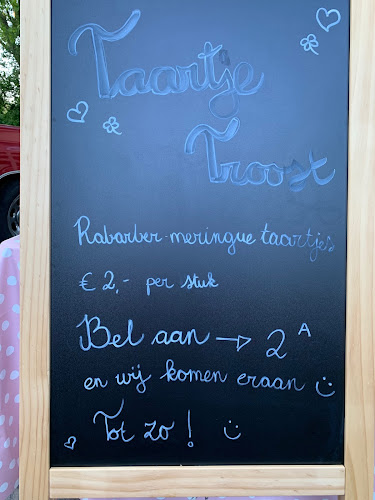 Taartje
Troost
Rabarber-meringue taartjes
€ 2,- per stuk
Bel aan → 2 A
en wij komen eraan :)
Tot zo! :)